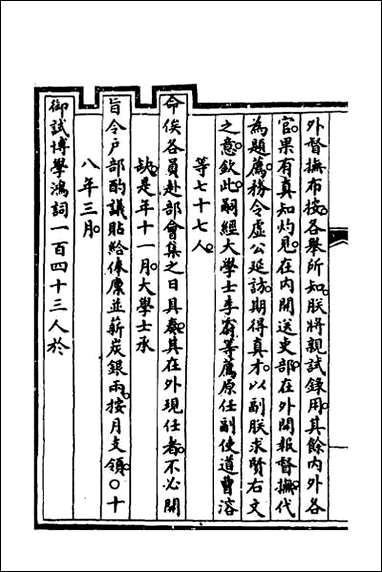 外督撫布按各舉所知朕將親試錄用其餘內外各
官果有真知灼見在內開送吏部在外開報督撫代
為題薦務令虛公延訪期得真才以副朕求賢右文
之意欽此嗣經大學士李霨等薦原任副使道曹溶
等七十七人
命俟各員赴部會集之日具奏其在外現任者不必開
缺是年十一月大學士承
旨令戶部酌議貼給俸廩並薪炭銀兩按月支領○十
八年三月
御試博學鴻詞一百四十三人於